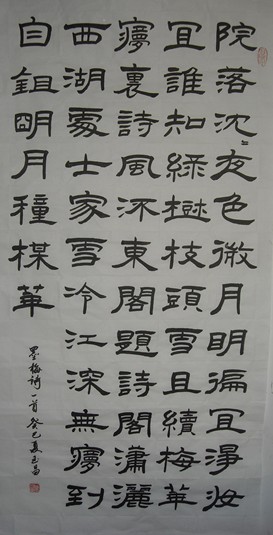 院落沈〻夜色微月明徧宜淨妝
宜誰知綠樹枝頭雪且續梅華
寢裏詩風沠東閣題詩閣瀟灑
西湖處士家雪冷江深無寢到
自鉏明月穜楳華
墨梅詩一首癸巳夏